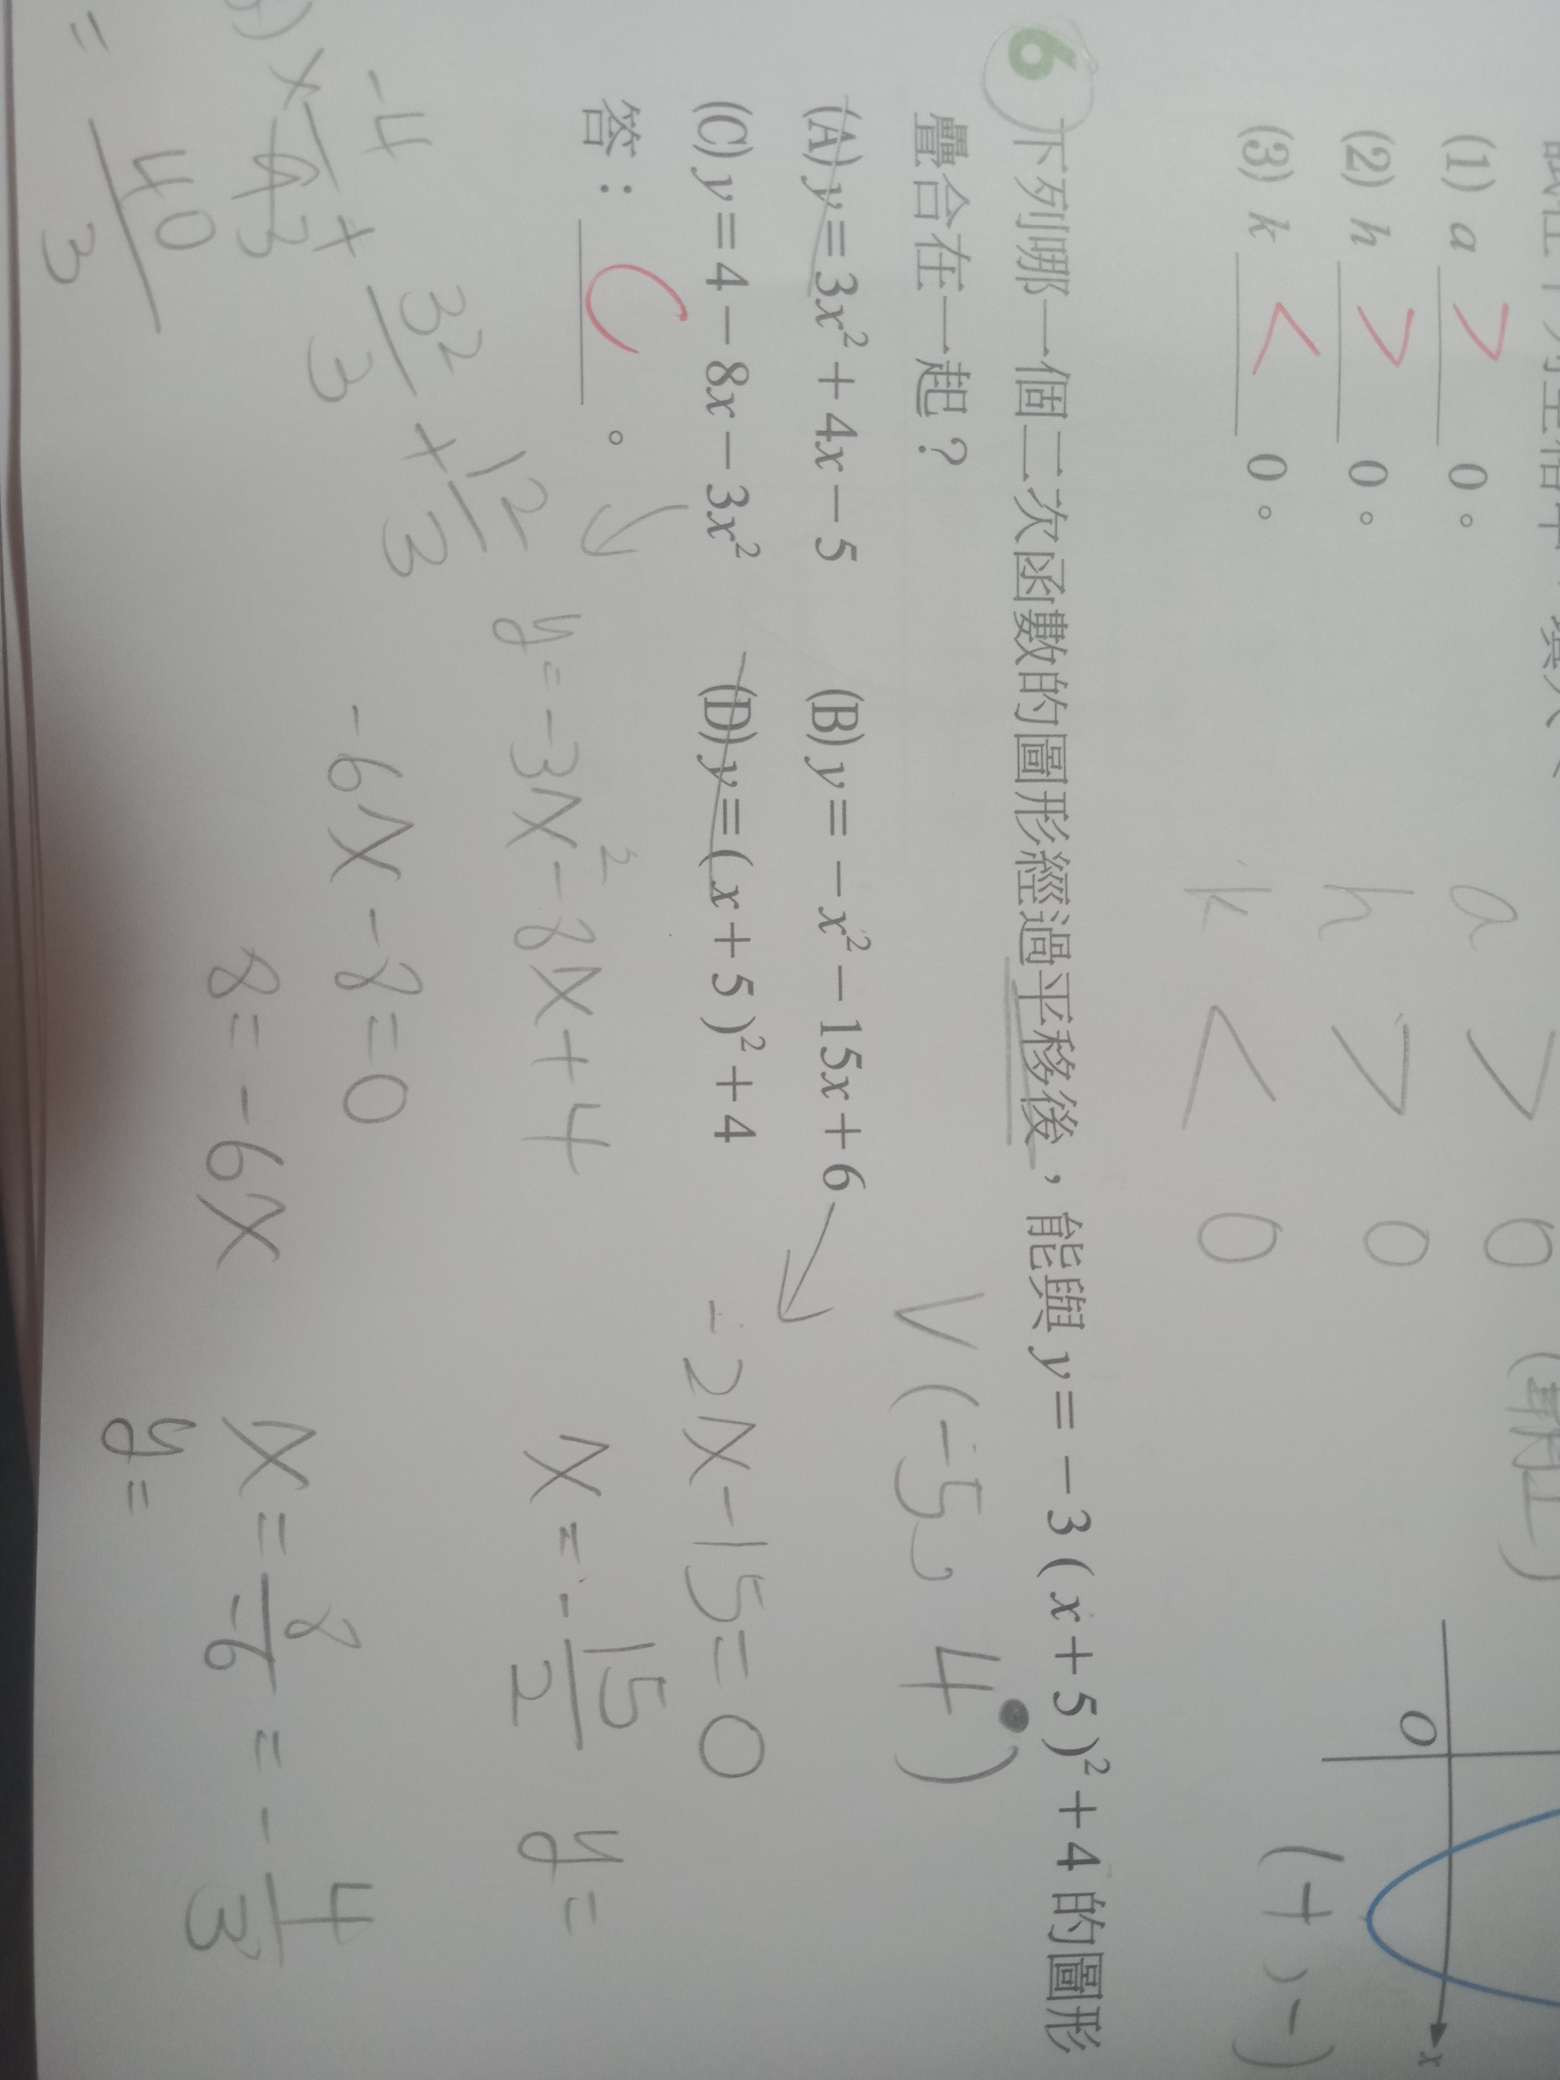 (1) a > 0。
a > 0
(2) h > 0。
h > 0
(3) k < 0。
k < 0
(+,-)
O
x
6 下列哪一個二次函數的圖形經過平移後，能與 y=-3(x+5)²+4 的圖形
疊合在一起？
V(-5, 4)
(A) y=3x²+4x-5 (B) y=-x²-15x+6
(C) y=4-8x-3x² (D) y=(x+5)²+4
-2x-15=0
答： C 。
x=-15/2 y=
y=-3x²-8x+4
-6x-8=0
8=-6x
x=8/-6=-4/3
y=
+ 32/3 + 12/3
= 40/3